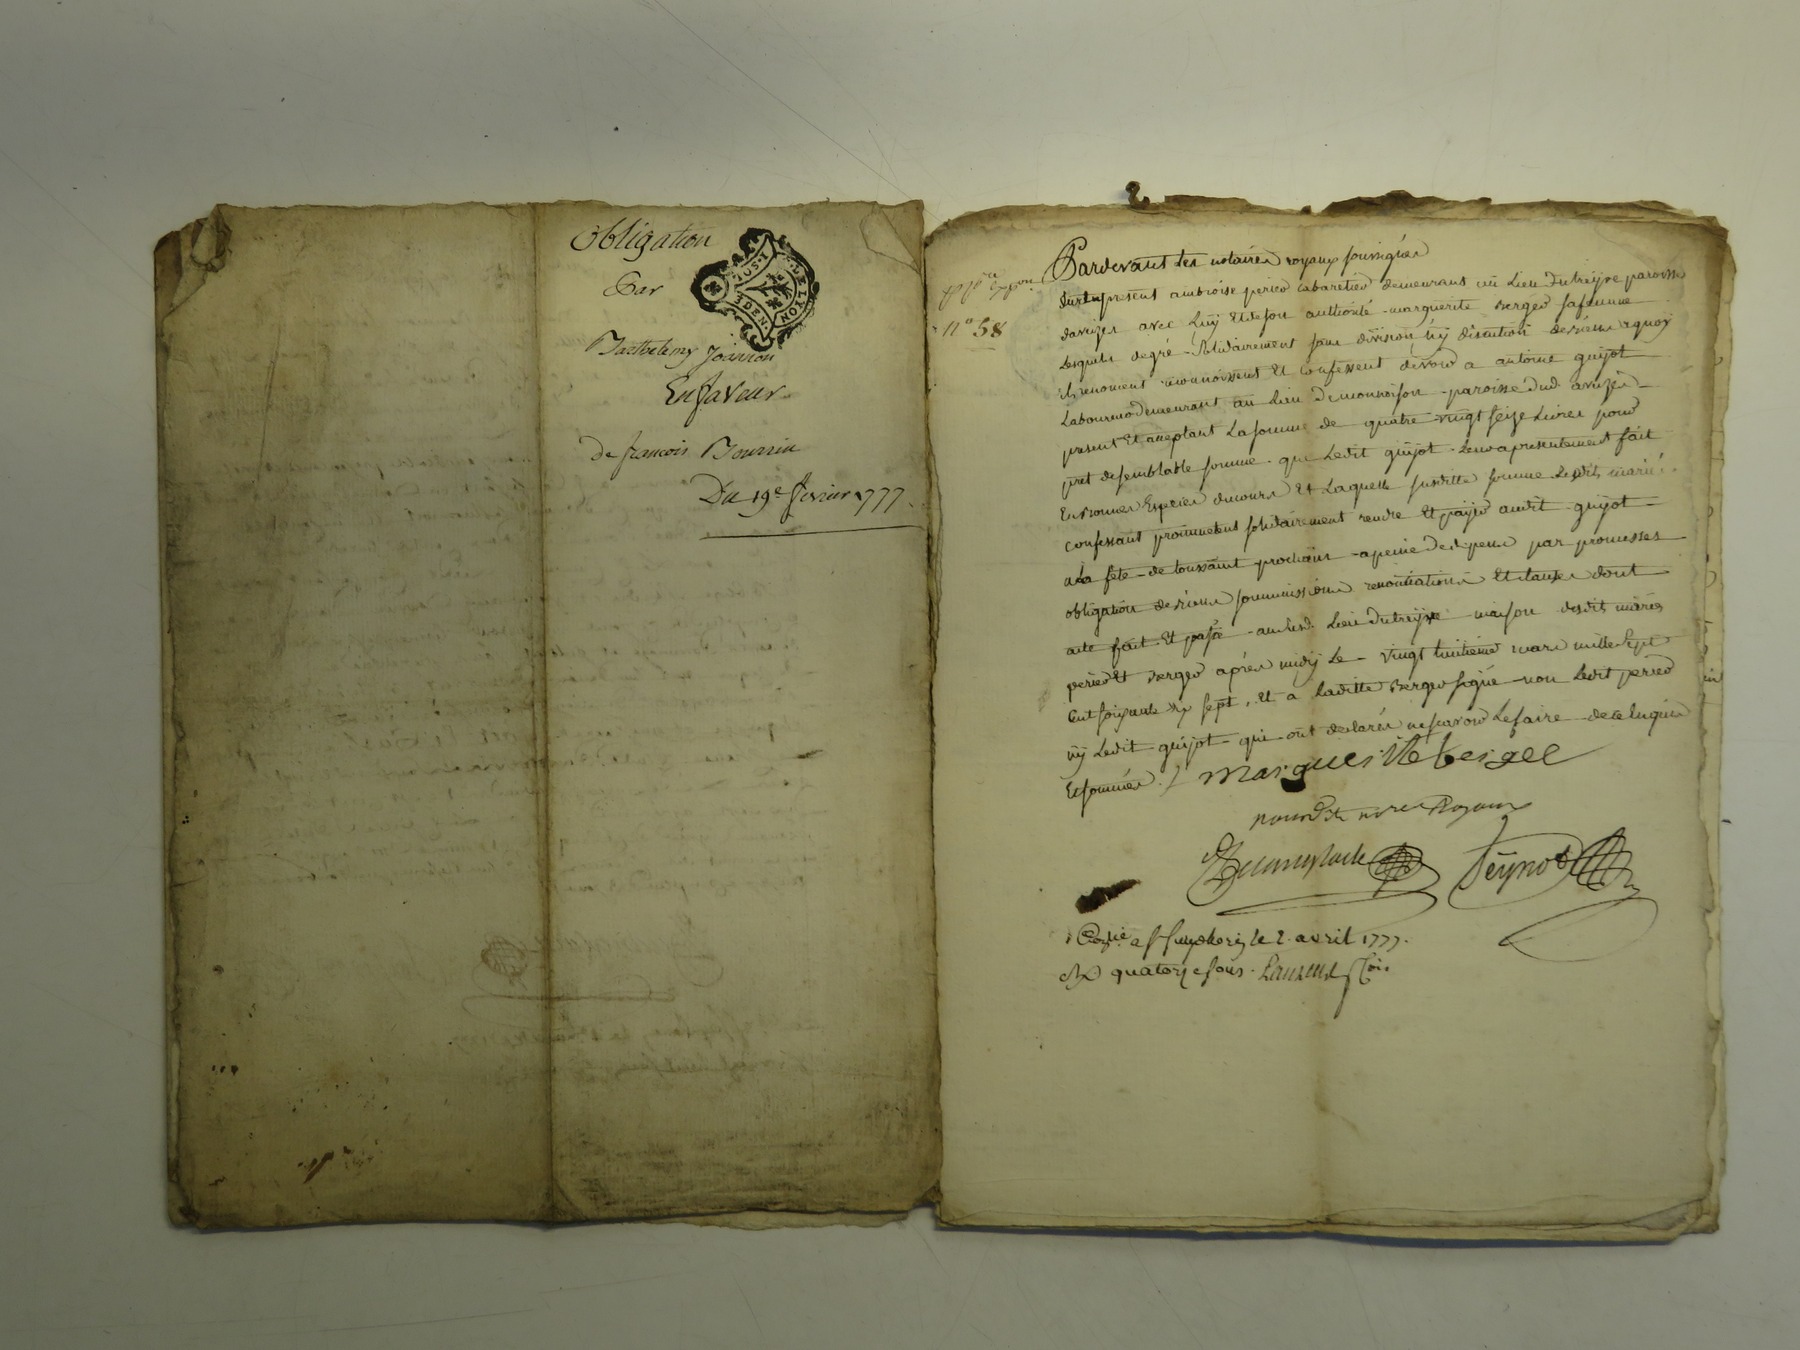 Obligation
Par
Barthelemy Joanion
En faveur
de francois Bourrin
Du 19e. fevrier 1777.
DE LYON
2 SOUS
n° 58
Pardevant les notaires royaux soussignés
furent present ambroise perier cabaretier demeurant au Lieu Dutreÿve paroisse
davaizes avec Luÿ Et de son authorité marguerite Berger sa femme
Lesquels degré solidairement sans division nÿ discution desdeux a quoÿ
ils renoncent reconnoissent Et confessent devoir a antoine guÿot
Laboureur demeurant au Lieu de paroisse dud. avaizes
present Et acceptant La somme de quatre vingt seize Livres pour
pret de semblable somme que Ledit guÿot Leur a presentement fait
En bonnes Especes ducours Et Laquelle susditte somme Lesdits mariés
confessant promettent solidairement rendre Et païer audit guÿot
a la fete de toussaint prochain a peine de depens par promesses
obligation desdeux soumissions renonciations Et clauses dont
acte fait Et passé audit Lieu Dutreÿve maison desdits mariés
perier Et Berger aprés midÿ Le vingt huitieme mars mille Sept
Cent soixante dix sept, Et a Laditte Berger signé non Ledit perier
nÿ Ledit guÿot qui ont declarés ne savoir Le faire de ce Enquis
Et sommés./. marguerite berger
nousdits nres. Royaux
Peÿnod
Controlé a le 2. avril 1777.
Rx quatorze sous. Laurent